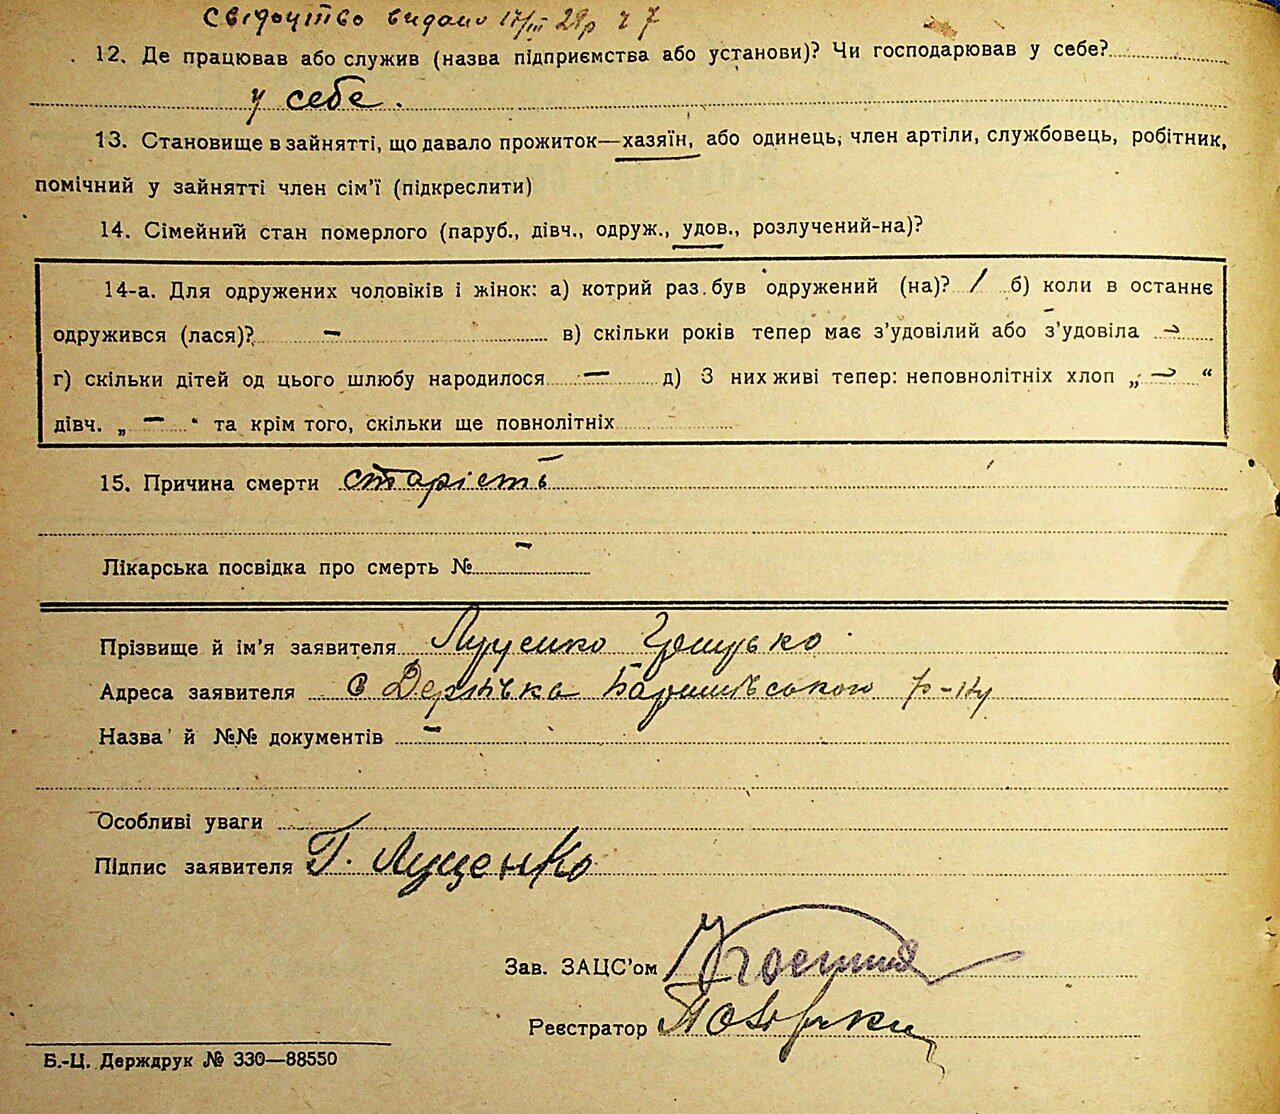 Свідоцтво видано 17/III 29р ч 7
12. Де працював або служив (назва підприємства або установи)? Чи господарював у себе?
у себе.
13. Становище в зайнятті, що давало прожиток—хазяїн, або одинець, член артіли, службовець, робітник,
помічний у зайнятті член сім'ї (підкреслити)
14. Сімейний стан померлого (паруб., дівч., одруж., удов., розлучений-на)?
14-а. Для одружених чоловіків і жінок: а) котрий раз був одружений (на)? / б) коли в останнє
одружився (лася)? — в) скільки років тепер має з'удовілий або з'удовіла —
г) скільки дітей од цього шлюбу народилося — д) З них живі тепер: неповнолітніх хлоп „ — “
дівч. „ — “ та крім того, скільки ще повнолітніх
15. Причина смерти старість
Лікарська посвідка про смерть № —
Прізвище й ім'я заявителя Луценко Грицько
Адреса заявителя с Дернівка Баришівського р-ну
Назва й №№ документів —
Особливі уваги
Підпис заявителя Г. Луценко
Зав. ЗАЦС'ом
Реєстратор
Б.-Ц. Держдрук № 330—88550